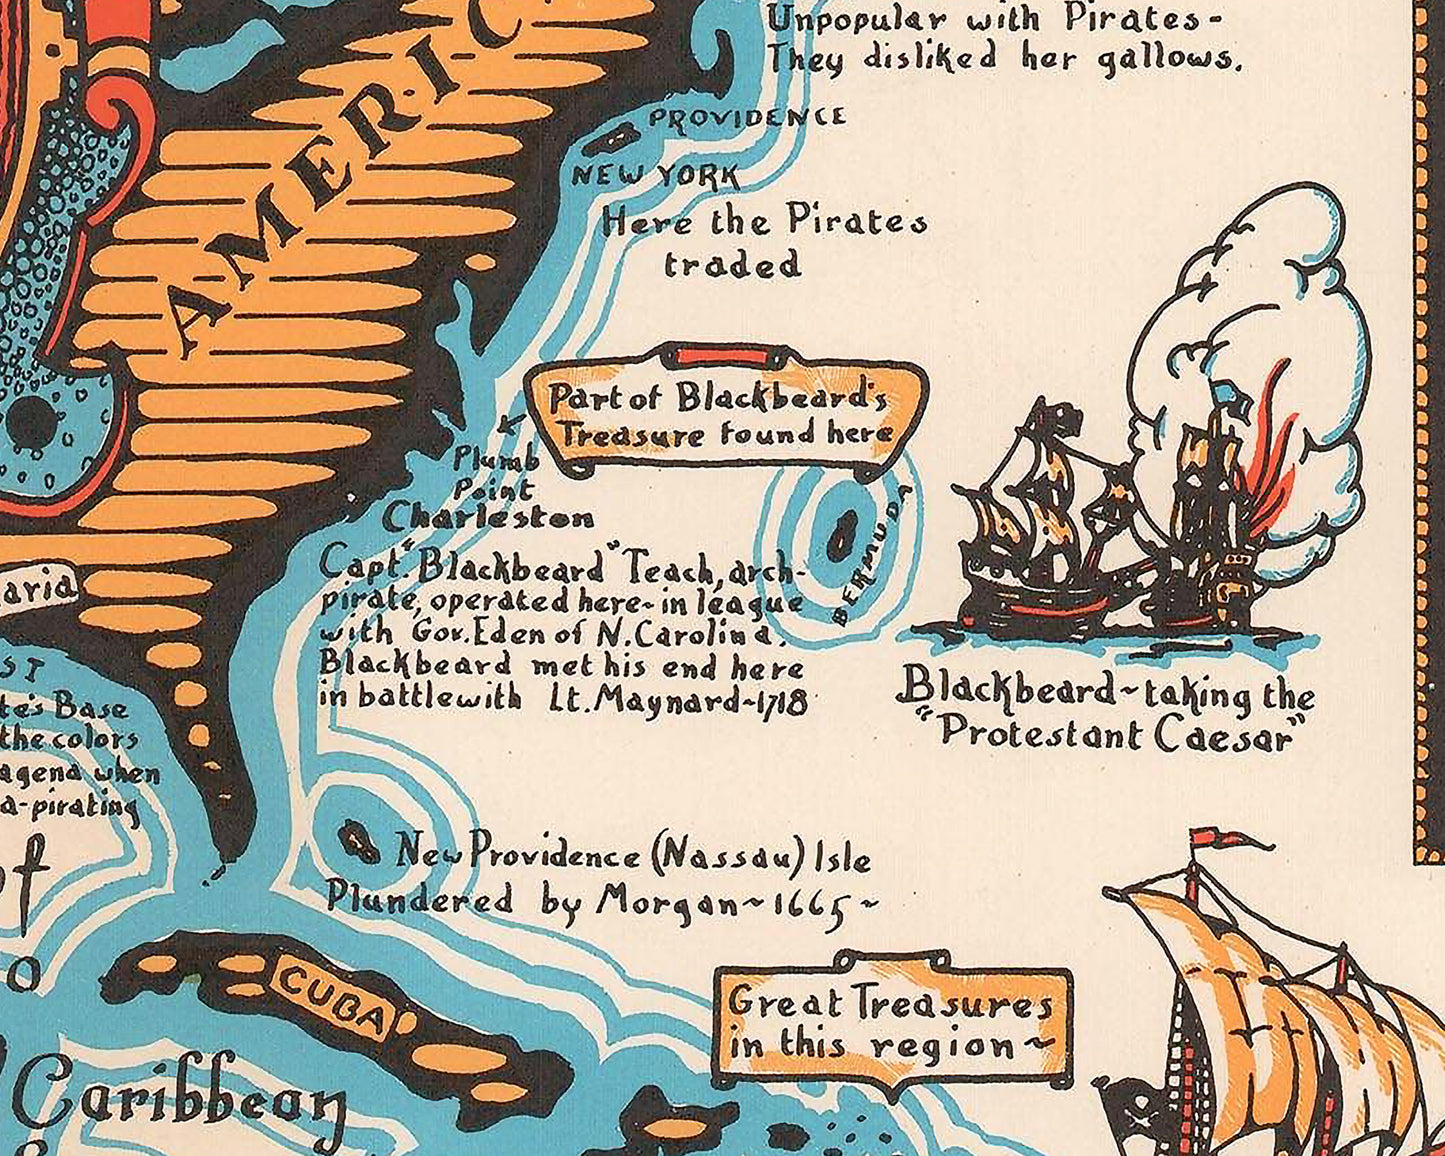 AMERIC
Unpopular with Pirates-
They disliked her gallows.
PROVIDENCE
NEW YORK
Here the Pirates
traded
Part of Blackbeard's
Treasure found here
Plumb
Point
Charleston
BERMUDA
Capt. "Blackbeard" Teach, arch-
pirate, operated here~in league
with Gov. Eden of N. Carolina.
Blackbeard met his end here
in battle with Lt. Maynard~1718
Blackbeard~taking the
"Protestant Caesar"
aria
ST
te's Base
the colors
agena when
a-pirating
of
o
New Providence (Nassau) Isle
Plundered by Morgan~1665~
CUBA
Great Treasures
in this region~
Caribbean